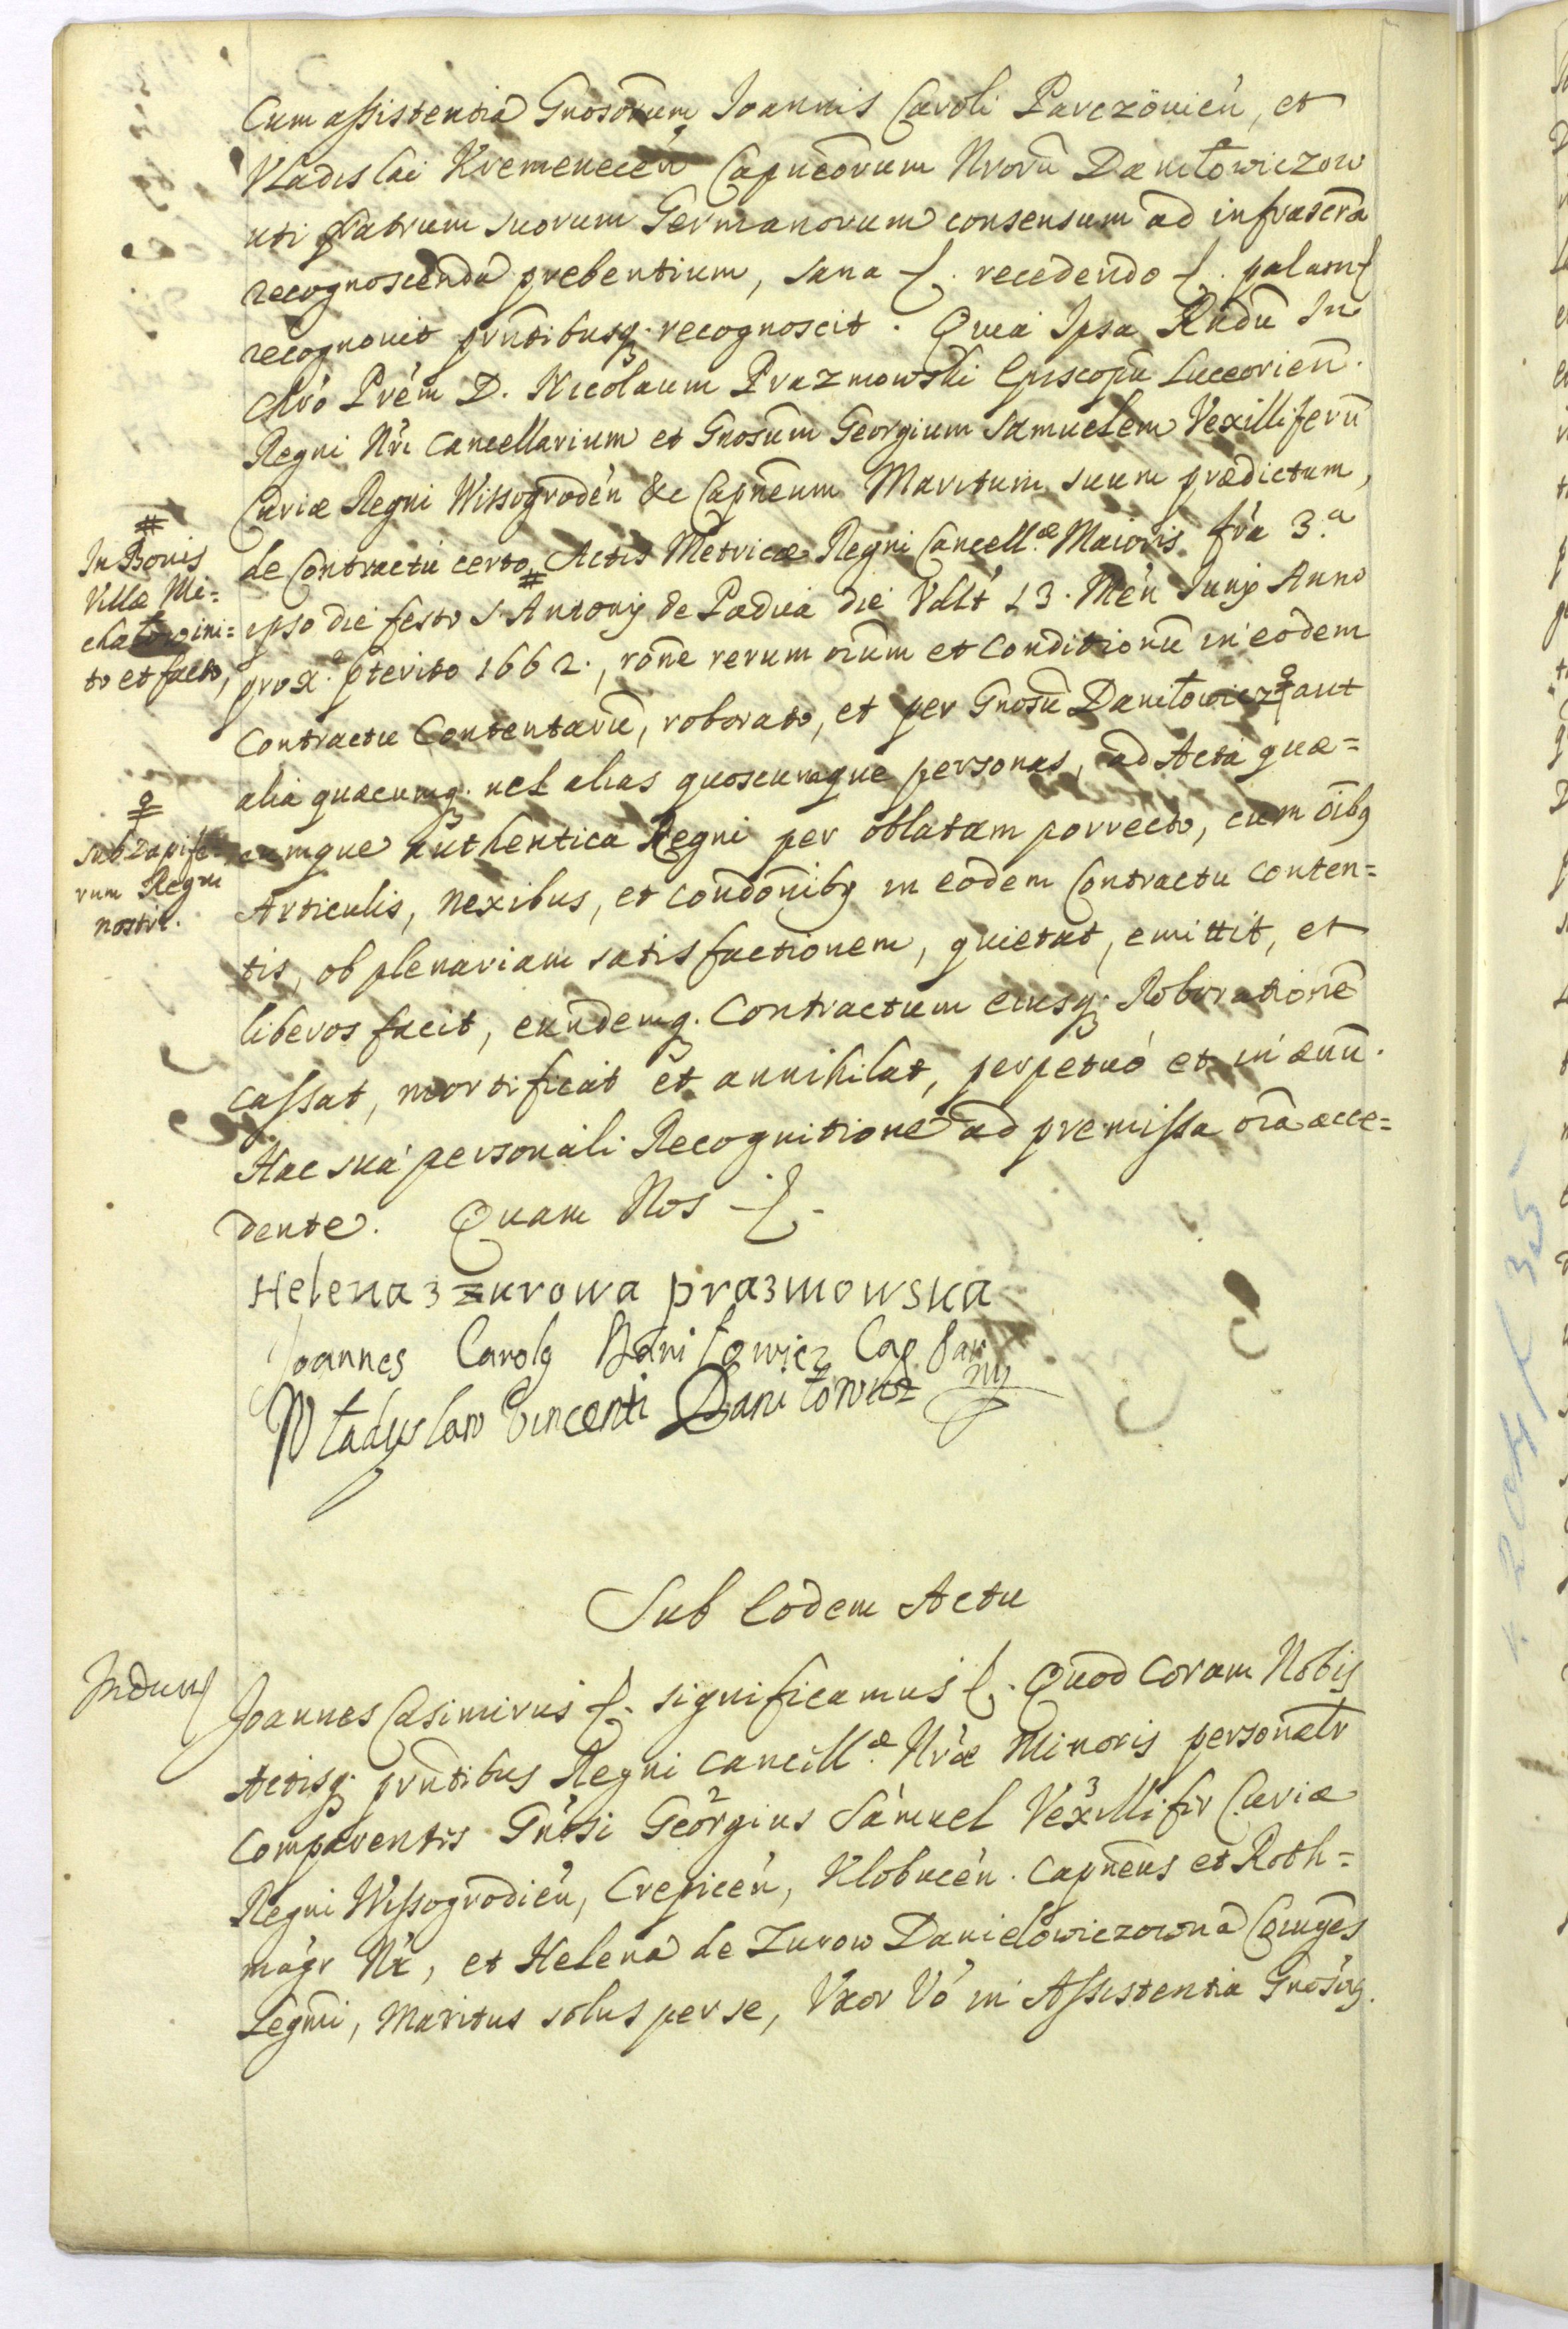 Cum assistentia Gnosorum Joannis Caroli Parczovien, et
Vladislai Kremenecen Capneorum Nrorū Daniłowiczow
uti fratrum suorum Germanorum consensum ad infrascra
recognoscenda prebentium, sana &. recedendo &. palam &
recognovit prntibusq. recognoscit. Quia Ipsa Rndū In
Chro Prem D. Nicolaum Prazmowski Episcopū Luceorien.
Regni Nri Cancellarium et Gnosum Georgium Samuelem Vexilliferū
Curiæ Regni Wissogroden &c Capneum Maritum suum prædictum,
de Contractu certo # Actis Metricæ Regni Cancellæ Maioris fra 3.a
#
In Bonis
Villæ Mi=
chałow ini=
to et facto,
ipso die festo S. Antonij de Padua die Vdlt 13. Men Junij Anno
prox. pterito 1662., rōne rerum oium et Conditionū in eodem
Contractu Contentarū, roborato, et per Gnosū Daniłowicz ♀ aut
alia quæcumq. vel alias quoscumque personas, ad Acta quæ=
♀
Sub Dapife=
rum Regni
nostri.
cumque authentica Regni per oblatam porrecto, cum oibq
Articulis, nexibus, et condonibq in eodem Contractu conten=
tis, ob plenariam satisfactionem, quietat, emittit, et
liberos facit, eundemq. Contractum eiusq. Roborationē
cassat, mortificat et annihilat, perpetuo et in ævū.
Hac sua personali Recognitione ad premissa oīa acce=
dente. Quam Nos &.
Helena z zurowa prazmowska
Joannes Carolq Daniłowicz Cap Par
Władysław Vincenti Daniłowicz mp
Sub Eodem Actu
Joannes Casimirus &. significamus &. Quod Coram Nobis
Actisq. prntibus Regni Cancellæ Nræ Minoris personalr
Comparentes Gnosi Georgius Samuel Vexillifer Curiæ
Regni Wissogrodien, Crepicen, Klobucen. Capneus et Roth=
magr Nr, et Helena de Zurow Danielowiczowna Coniuges
Legmi, Maritus solus per se, Uxor Vo in Assistentia Gnosorq.